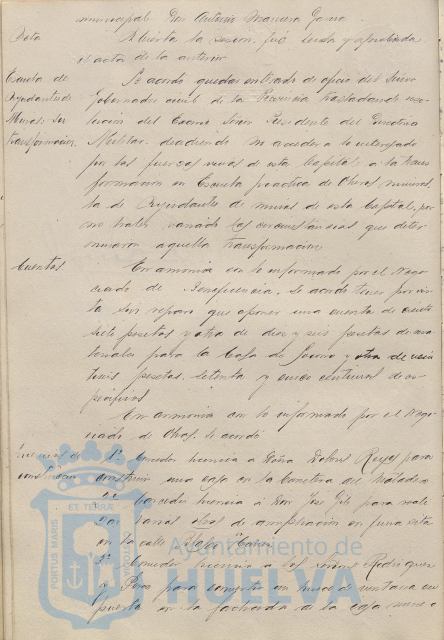 municipal Don Antonio
Acta Abierta la sesion, fué leida y aprobada
el acta de la anterior
Escuela de Se acordó quedar enterado de oficio del Señor
Ayudantes de Gobernador civil de la Provincia trasladando reso-
Minas: Su lucion del Excmo Señor Presidente del Directorio
transformacion Militar, no acceder a lo interesado
por las fuerzas vivas de esta Capital a la trans
formacion en Escuela practica de Obreros mineros,
la de Ayudantes de minas de esta Capital, por
no haber variado las circunstancias que deter
minaron aquella transformacion
Cuentas En armonia con lo informado por el Nego
ciado de Beneficencia, se acordó tener por vis
ta sin reparo que oponer una cuenta de ciento
siete pesetas y otra de diez y seis pesetas de ma
teriales para la Casa de Socorro y otra de vein
tiseis pesetas, setenta y cinco centimos de es
pecificos
En armonia con lo informado por el Nego
ciado de Obras, se acordó
Licencias de 1º Conceder licencia a Doña Dolores Reyes para
construccion construir una casa en la Carretera del Matadero
2º Conceder licencia a Don José para reali
zar obras de ampliacion en finca sita
en la calle
3º Conceder licencia a los Señores Rodriguez
y Perez para convertir un hueco de ventana en
puerta en la fachada de la casa numero
PORTUS MARIS ET TERRAE
Ayuntamiento de
HUELVA